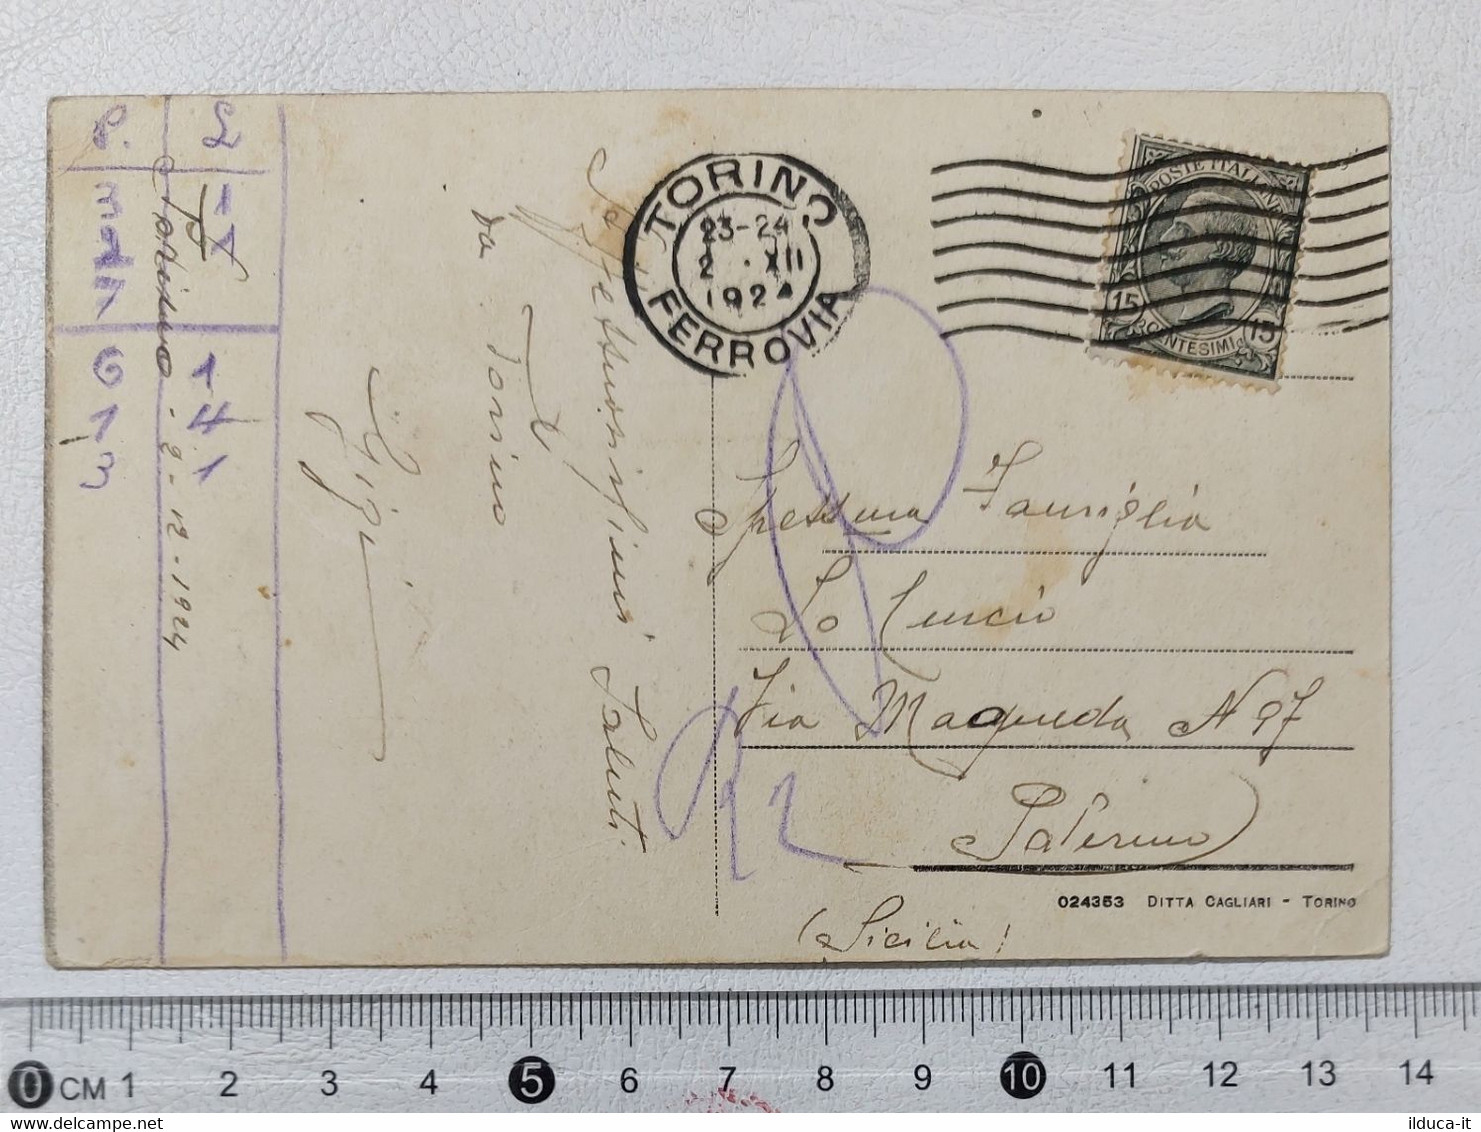 P. L
3 1
2
6 1
1 4
3 1
Torino - 2-12-1924
Affettuosissimi Saluti
da Torino
Gigi
TORINO
23-24
2 · XII
1924
FERROVIA
POSTE ITALIANE
15 CENTESIMI 15
Famiglia
Lo Curcio
Via Maqueda N 97
Palermo
(Sicilia)
R2
024353 DITTA CAGLIARI - TORINO
0 CM 1 2 3 4 5 6 7 8 9 10 11 12 13 14
ilduca-it